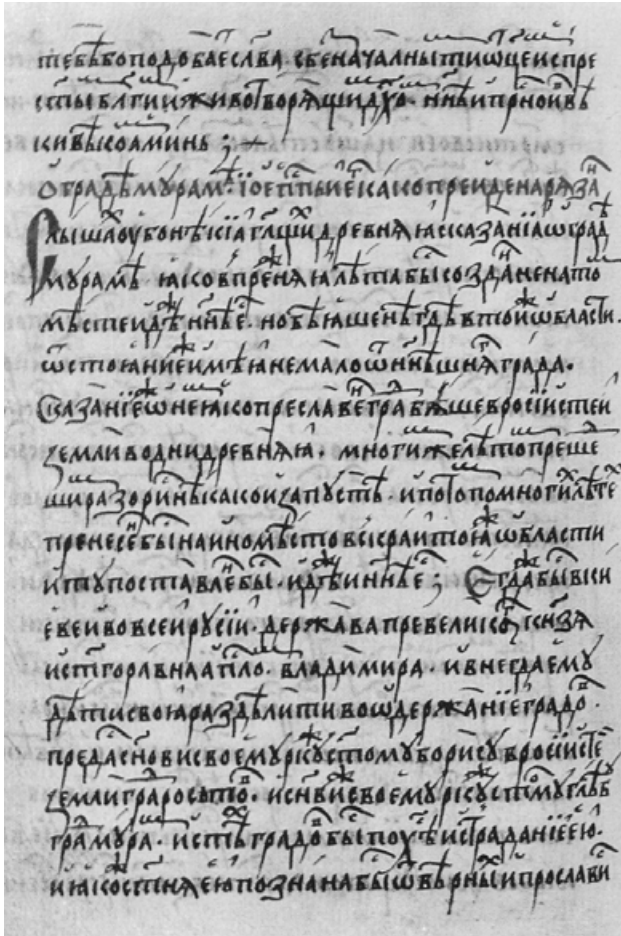 тебѣ бо подобаеⷮ слава. съ беⷥначалныⷨ ти ѡц҃еⷨ и с пре
ст҃ыⷨ и бл҃гиⷨ и животворѧщиⷨ дх҃оⷨ. нн҃ѣ и прⷭ҇но и въ
ки вѣкоⷨ аминь :
О градѣ мурамⷷ. і ѡ еппⷭ҇ьи еⷢ како преиде на рѧзаⷩ
Слышахоⷨ ѹбо нѣкіа гл҃щиⷯ древнѧꙗ сказаніа ѡ градѣ
мурамѣ ꙗко в преⷤнѧꙗ лѣта бысⷮ созданⷩ не на тоⷨ
мѣсте идѣⷤ нн҃ѣ еⷭ. но бѣꙗше нѣгдѣ в тоиⷤ ѡбласти.
ѿстоꙗние имѣꙗ не мало ѿ нн҃ѣшнѧⷢ града.
Сказаніеⷤ ѡ неⷨ ꙗко преславеⷩ граⷣ бѧше в росіистеи
земли во дни древнѧꙗ. многиⷨ же лѣтоⷨ преше
шиⷨ разориⷭ нѣкако и запустѣ. и по тоⷨ по многиⷯ лѣтеⷯ
пренесеⷩ быⷭ на ино мѣсто всѧкраи тоꙗⷤ ѡбласти
и ту поставлеⷩ быⷭ. идѣⷤ и нн҃ѣ еⷭ ; Егда быⷭ в ки
еве и во всеи русіи. держава превеликоⷢ кнзѧ
и ст҃го равнаапⷭ҇ло. владимира. и внегда ему
дѣтиⷨ своиⷨ раздѣлити во ѡдержаніе градоⷡ.
предасⷮ сн҃ови своему ркⷤу ст҃омꙋ борису в росіистеⷨ
земли граⷣ ростоⷡ. и сн҃ви своему ркⷤу ст҃мꙋ глѣбу
граⷣ мураⷨ. и в стѣⷯ градоⷡ быⷭ поⷣвиⷢ и страданіе ею.
и ꙗкоⷤ ст҃ынѧ ею познана быⷭ ѿ вѣрныⷯ и прослави